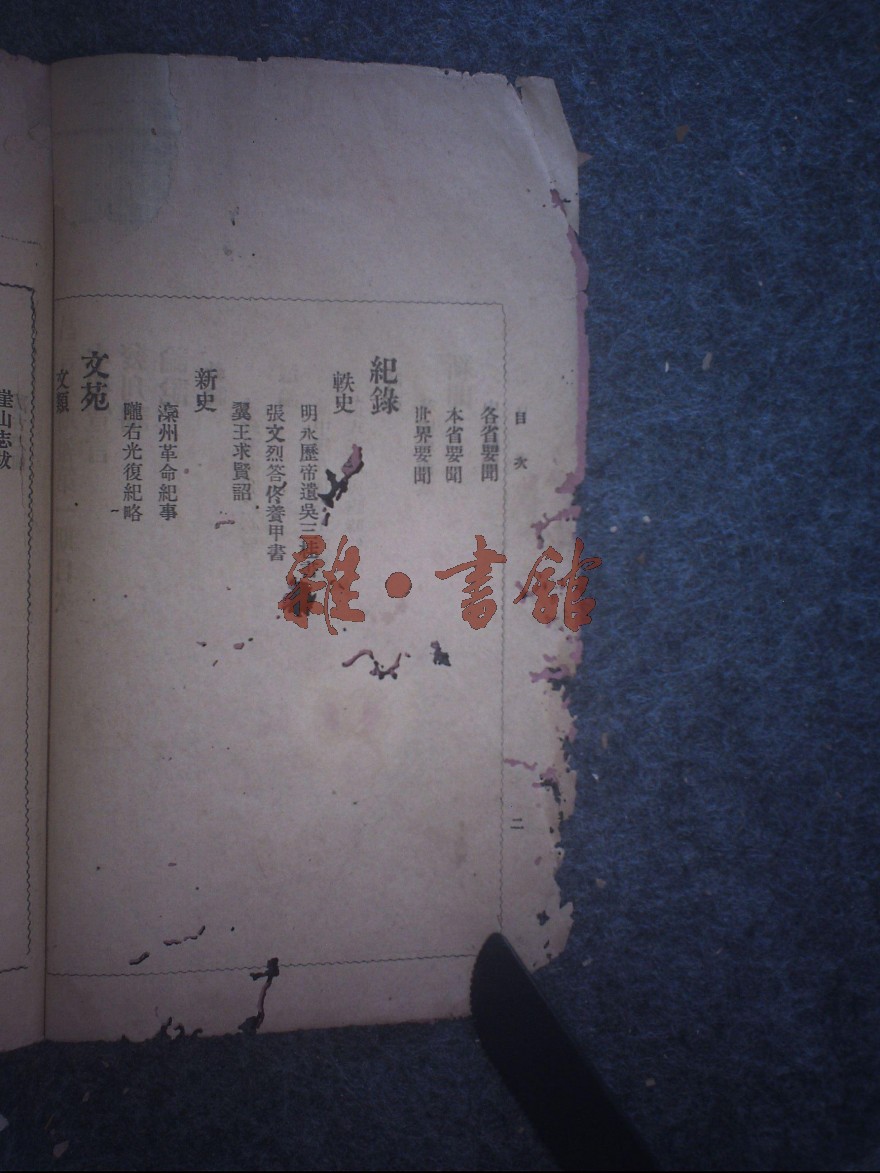 目次
二
各省要聞
本省要聞
世界要聞
紀錄
軼史
明永歷帝遺吳三桂
張文烈答佟養甲書
翼王求賢詔
新史
灤州革命紀事
隴右光復紀略
文苑
文類
崖山志
雜·書館